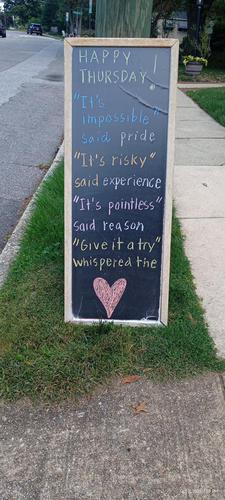 HAPPY
THURSDAY!
"It's
impossible"
said pride
"It's risky"
said experience
"It's pointless"
said reason
"Give it a try"
whispered the